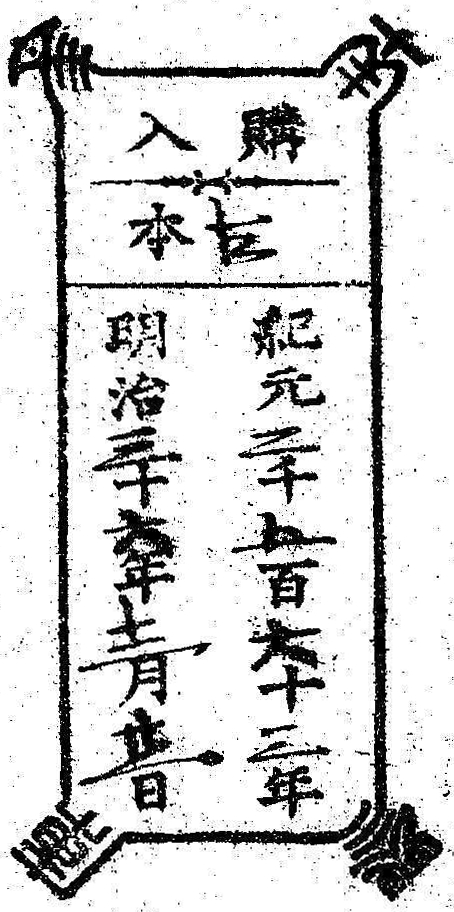 購入
古本
紀元二千五百六十三年
明治三十六年十二月日